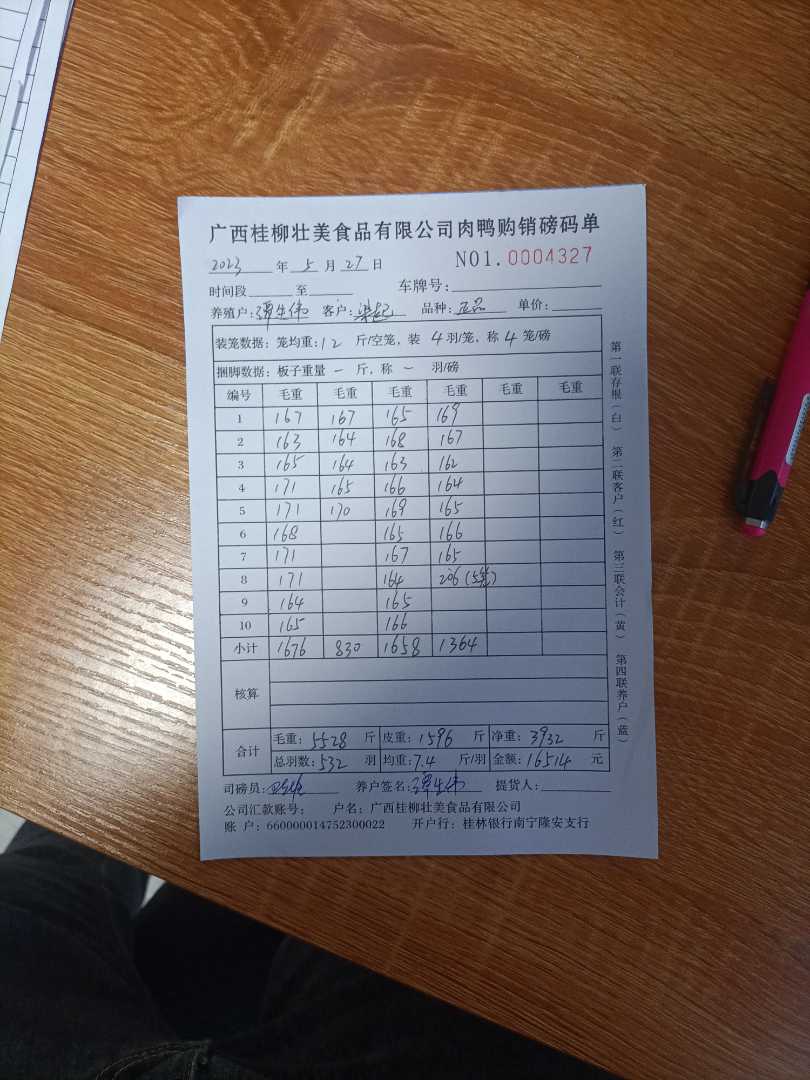 广西桂柳壮美食品有限公司肉鸭购销磅码单
2023 年 5 月 27 日 NO1.0004327
时间段 至 车牌号:
养殖户:谭生伟 客户: 品种:正品 单价:
装笼数据:笼均重:12 斤/空笼,装 4 羽/笼,称 4 笼/磅
捆脚数据:板子重量 — 斤,称 — 羽/磅
编号 毛重 毛重 毛重 毛重 毛重 毛重
1 167 167 165 169
2 163 164 168 167
3 165 164 163 162
4 171 165 166 164
5 171 170 169 165
6 168 165 166
7 171 167 165
8 171 164 206(5笼)
9 164 165
10 165 166
小计 1676 830 1658 1364
核算
合计 毛重:5528 斤 皮重:1596 斤 净重:3932 斤
总羽数:532 羽 均重:7.4 斤/羽 金额:16514 元
司磅员: 养户签名:谭生伟 提货人:
公司汇款账号: 户名:广西桂柳壮美食品有限公司
账 户:660000014752300022 开户行:桂林银行南宁隆安支行
第一联存根(白) 第二联客户(红) 第三联会计(黄) 第四联养户(蓝)